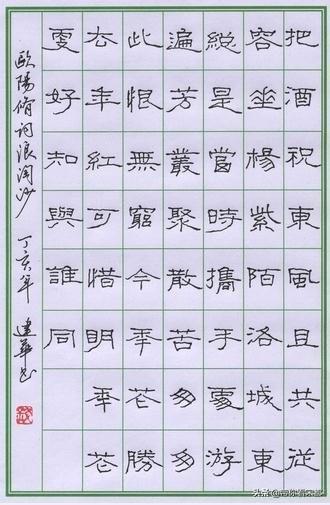 把酒祝東風且共從
容垂楊紫陌洛城東
總是當時攜手處游
遍芳叢聚散苦匆匆
此恨無窮今年花勝
去年紅可惜明年花
更好知與誰同
歐陽脩詞浪淘沙 丁亥年 建華書
头条